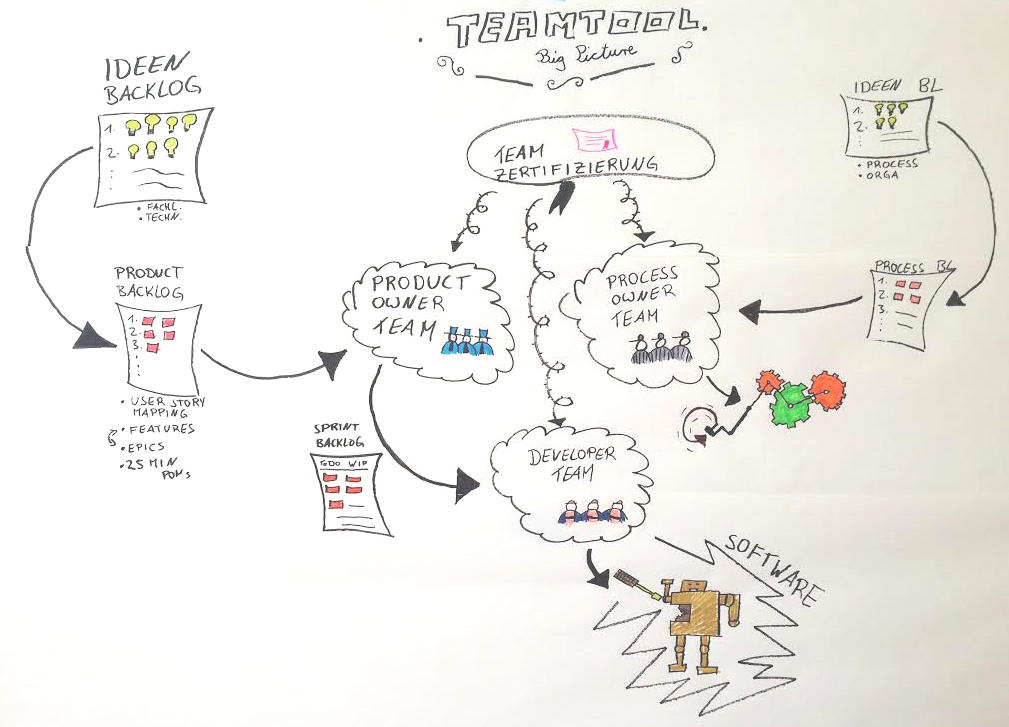 . TEAMTOOL.
Big Picture
IDEEN
BACKLOG
1.
2.
• FACHL.
• TECHN.
PRODUCT
BACKLOG
1.
2.
3.
• USER STORY
MAPPING
• FEATURES
• EPICS
• 25 MIN
PONs
TEAM
ZERTIFIZIERUNG
PRODUCT
OWNER
TEAM
PROCESS
OWNER
TEAM
IDEEN BL
1.
2.
• PROCESS
• ORGA
PROCESS BL
1.
2.
3.
SPRINT
BACKLOG
TODO WIP
DEVELOPER
TEAM
SOFTWARE